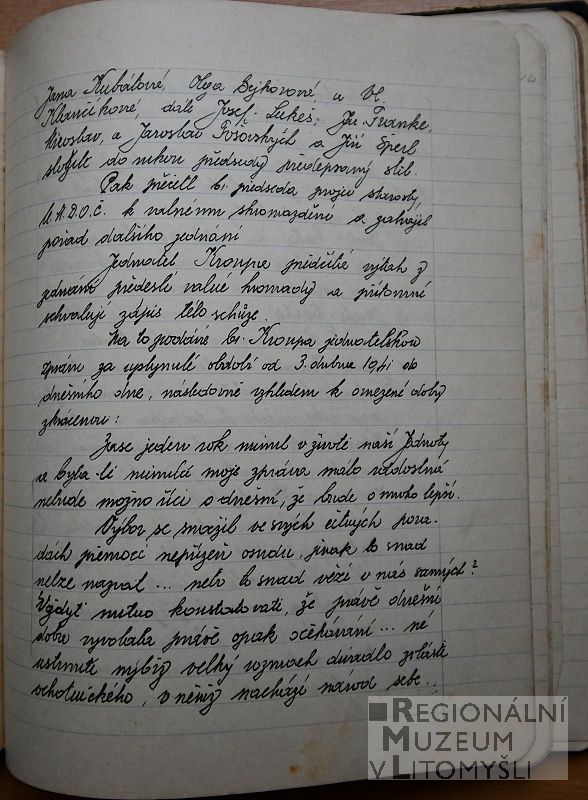 Jana Kubátové, Olga Bejkovové a Vl.
Klančíkové, dále Josef Lukeš, Jiří Franke,
Miroslav, a Jaroslav Tošovských a Jiří Šperl
složili do rukou předsedy předepsaný slib.
Pak přečetl br. předseda projev starosty
Ú.A.D.O.Č. k valnému shromáždění a zahájil
pořad dalšího jednání
Jednatel Kroupa předčítá výtah z
jednání předešlé valné hromady a přítomní
schvalují zápis této schůze.
Na to podává br. Kroupa jednatelskou
zprávu za uplynulé období od 3. dubna 1941 do
dnešního dne, následovně vzhledem k omezené době
zkrácenou:
Zase jeden rok minul v životě naší Jednoty
a byla-li minulá moje zpráva málo radostná
nebude možno říci o dnešní, že bude o mnoho lepší.
Výbor se snažil ve svých četných pora-
dách přemoci nepřízeň osudu, jinak to snad
nelze nazvat ... nebo to snad vězí v nás samých?
Vždyť nutno konstatovati, že právě dnešní
doba vyvolala právě opak očekávání ... ne
ustrnutí nýbrž velký vzmach divadla zvláště
ochotnického, v němž nachází národ sebe...
REGIONÁLNÍ
MUZEUM
V LITOMYŠLI